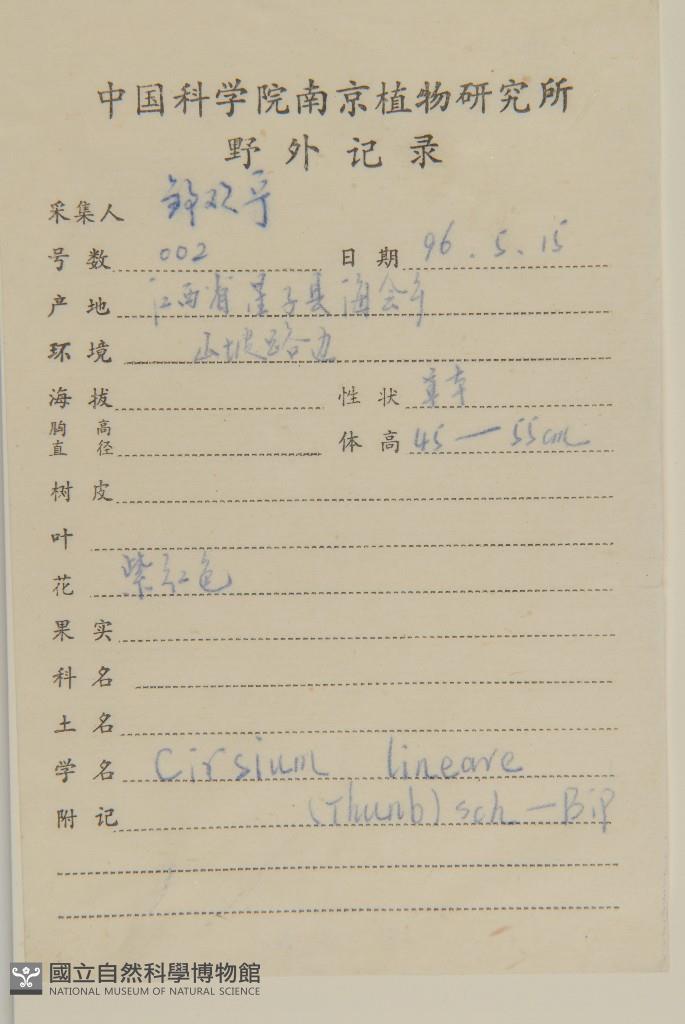 中国科学院南京植物研究所
野外记录
采集人
号数 002 日期 96.5.15
产地 江西省星子县海会乡
环境 山坡路边
海拔 性状 草本
胸高直径 体高 45—55cm
树皮
叶
花 紫红色
果实
科名
土名
学名 Cirsium lineare
附记 (Thunb) Sch—Bip
國立自然科學博物館
NATIONAL MUSEUM OF NATURAL SCIENCE